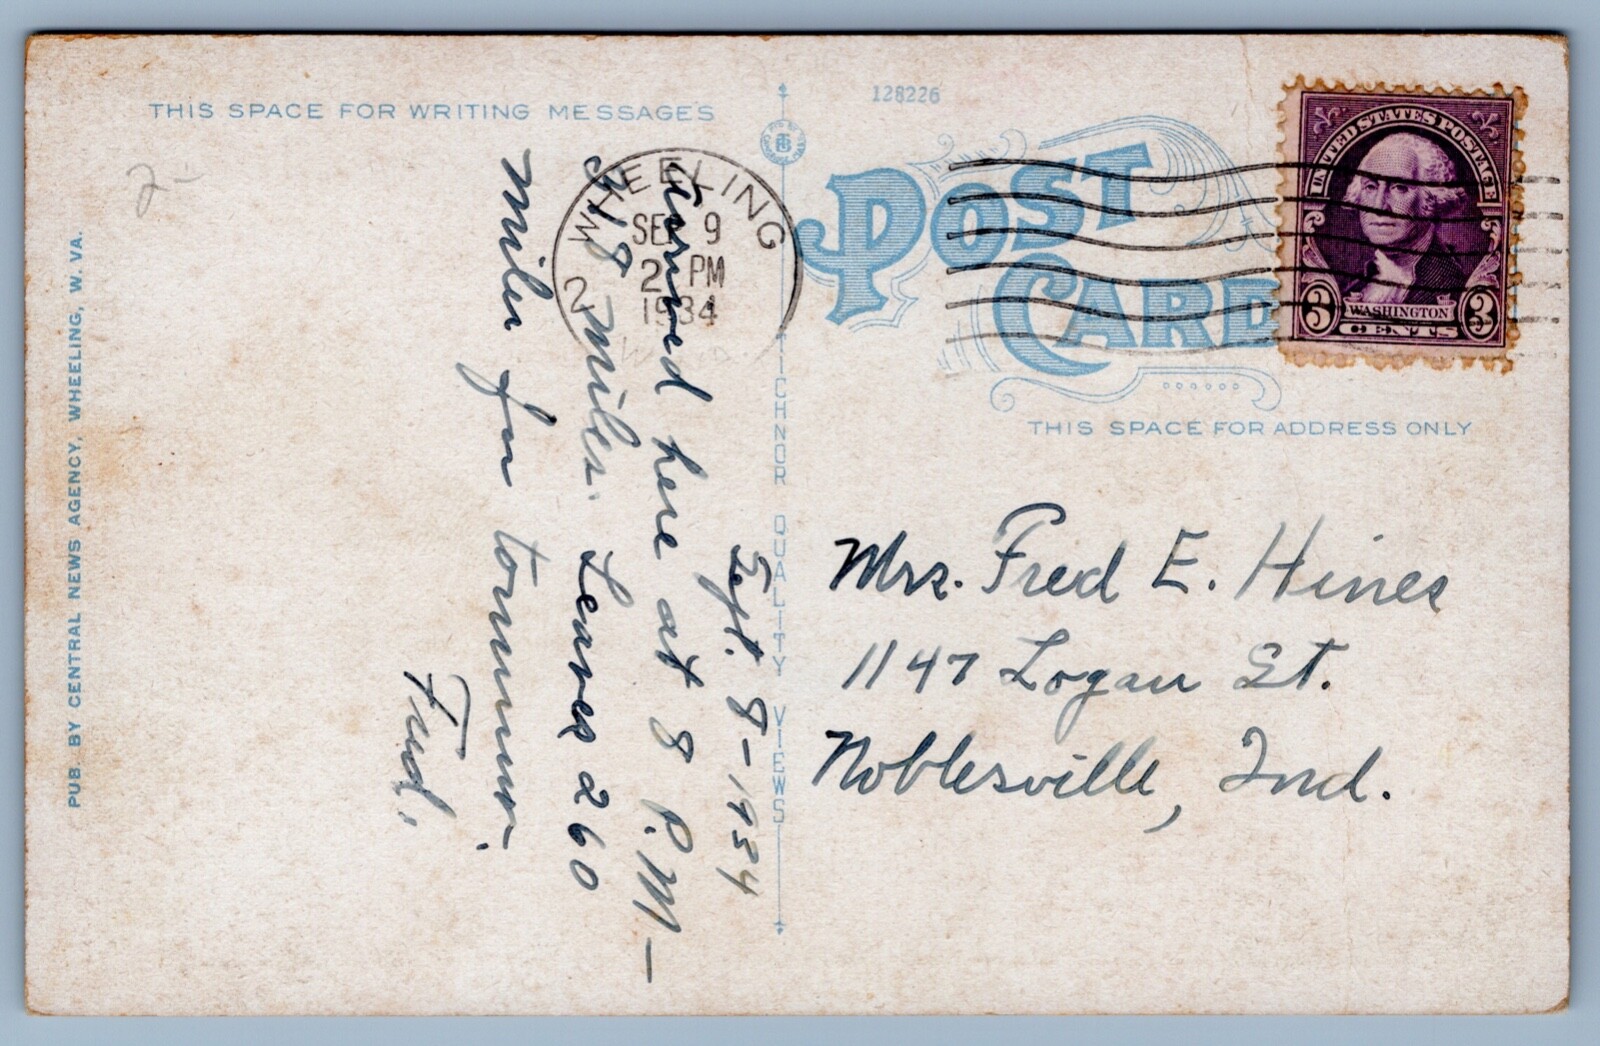 THIS SPACE FOR WRITING MESSAGES
128226
POST
CARD
THIS SPACE FOR ADDRESS ONLY
UNITED STATES POSTAGE
3 WASHINGTON 3
CENTS
WHEELING
SEP 9
2 PM
1934
W. VA.
2
2-
Sept. 8-1934
Arrived here at 8 P.M-
318 miles. Leaves 260
miles for tomorrow.
Fred.
Mrs. Fred E. Hines
1147 Logan St.
Noblesville, Ind.
TICHNOR QUALITY VIEWS
PUB. BY CENTRAL NEWS AGENCY, WHEELING, W. VA.